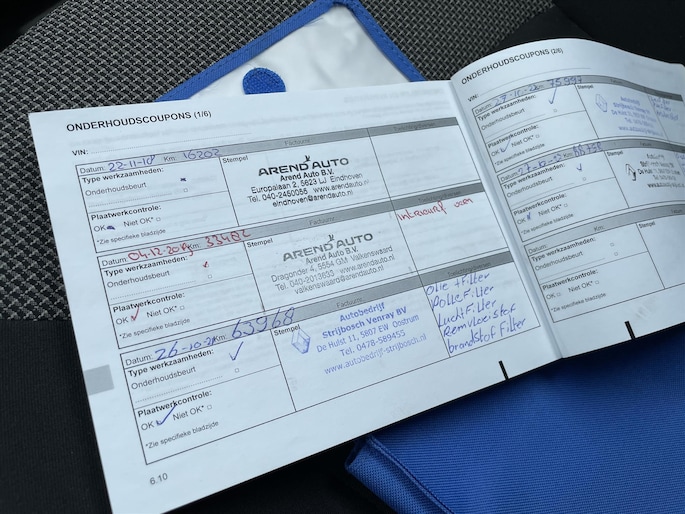 ONDERHOUDSCOUPONS (1/6)
VIN:
Datum: 22-11-18 Km: 16202
Type werkzaamheden:
Onderhoudsbeurt
Plaatwerkcontrole:
OK Niet OK*
*Zie specifieke bladzijde
Factuurnr.
Stempel
AREND AUTO
Arend Auto B.V.
Europalaan 2, 5623 LJ Eindhoven
Tel. 040-2450055 www.arendauto.nl
eindhoven@arendauto.nl
Datum: 04-12-2019 Km: 33482
Type werkzaamheden:
Onderhoudsbeurt
Plaatwerkcontrole:
OK Niet OK*
*Zie specifieke bladzijde
Factuurnr.
Stempel
AREND AUTO
Arend Auto B.V.
Dragonder 4, 5554 GM Valkenswaard
Tel. 040-2013633 www.arendauto.nl
valkenswaard@arendauto.nl
Interieurf
Datum: 26-10-21 Km: 63968
Type werkzaamheden:
Onderhoudsbeurt
Plaatwerkcontrole:
OK Niet OK*
*Zie specifieke bladzijde
Factuurnr.
Stempel
Autobedrijf
Strijbosch Venray BV
De Hulst 11, 5807 EW Oostrum
Tel. 0478-589455
www.autobedrijf-strijbosch.nl
Olie + Filter
Pollefilter
Luchtfilter
Remvloeistof
brandstof Filter
6.10
ONDERHOUDSCOUPONS (2/6)
VIN:
Datum:
Type werkzaamheden:
Onderhoudsbeurt
Plaatwerkcontrole:
OK Niet OK*
*Zie specifieke bladzijde
Stempel
Datum:
Type werkzaamheden:
Onderhoudsbeurt
Plaatwerkcontrole:
OK Niet OK*
*Zie specifieke bladzijde
Datum: Km:
Type werkzaamheden:
Onderhoudsbeurt
Plaatwerkcontrole:
OK Niet OK*
*Zie specifieke bladzijde
Stempel